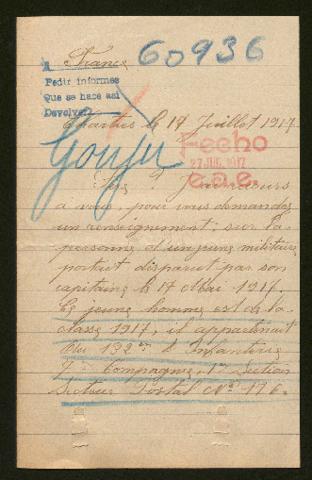 France
60936
A
Pedir informes
Que se hace asi
Devolver
Chartres le 17 Juillet 1917
Gouju
Fecho
27 JUL 1917
c.a.e.
Sire ? J'ai recours
à vous pour vous demander
un renseignement : sur la
personne d'un jeune militaire
portait disparut par son
capitaine le 17 Mai 1917.
Ce jeune homme est de la
classe 1917, il appartenait
au 132me d'Infanterie
7e Compagnie, 1re Section
Secteur Postal No 116.